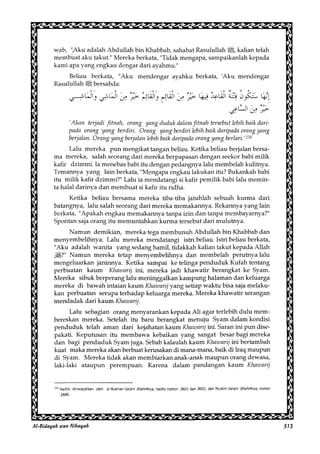 wab, "Aku adalah Abdullah bin Khabbab, sahabat Rasulullah ﷺ, kalian telah
membuat aku takut." Mereka berkata, "Tidak mengapa, sampaikanlah kepada
kami apa yang engkau dengar dari ayahmu."
Beliau berkata, "Aku mendengar ayahku berkata, 'Aku mendengar
Rasulullah ﷺ bersabda:
إنها ستكون فتنة القاعد فيها خير من القائم والقائم خير من الماشي والماشي
خير من الساعي
'Akan terjadi fitnah, orang yang duduk dalam fitnah tersebut lebih baik dari-
pada orang yang berdiri. Orang yang berdiri lebih baik daripada orang yang
berjalan. Orang yang berjalan lebih baik daripada orang yang berlari.'
Lalu mereka pun mengikat tangan beliau. Ketika beliau berjalan bersa-
ma mereka, salah seorang dari mereka berpapasan dengan seekor babi milik
kafir dzimmi. Ia menebas babi itu dengan pedangnya lalu membelah kulitnya.
Temannya yang lain berkata, "Mengapa engkau lakukan itu? Bukankah babi
itu milik kafir dzimmi?" Lalu ia mendatangi si kafir pemilik babi lalu memin-
ta halal darinya dan membuat si kafir itu ridha.
Ketika beliau bersama mereka tiba-tiba jatuhlah sebuah kurma dari
batangnya, lalu salah seorang dari mereka memakannya. Rekannya yang lain
berkata, "Apakah engkau memakannya tanpa izin dan tanpa membayarnya?"
Spontan saja orang itu memuntahkan kurma tersebut dari mulutnya.
Namun demikian, mereka tega membunuh Abdullah bin Khabbab dan
menyembelihnya. Lalu mereka mendatangi istri beliau. Istri beliau berkata,
"Aku adalah wanita yang sedang hamil, tidakkah kalian takut kepada Allah
ﷻ?" Namun mereka tetap menyembelihnya dan membelah perutnya lalu
mengeluarkan janinnya. Ketika sampai ke telinga penduduk Kufah tentang
perbuatan kaum Khawarij ini, mereka jadi khawatir berangkat ke Syam.
Mereka sibuk berperang lalu meninggalkan kampung halaman dan keluarga
mereka di bawah intaian kaum Khawarij yang setiap waktu bisa saja melaku-
kan perbuatan serupa terhadap keluarga mereka. Mereka khawatir serangan
mendadak dari kaum Khawarij.
Lalu sebagian orang menyarankan kepada Ali agar terlebih dulu mem-
bereskan mereka. Setelah itu baru berangkat menuju Syam dalam kondisi
penduduk telah aman dari kejahatan kaum Khawarij ini. Saran ini pun dise-
pakati. Keputusan itu membawa kebaikan yang sangat besar bagi mereka
dan bagi penduduk Syam juga. Sebab kalaulah kaum Khawarij ini bertambah
kuat maka mereka akan berbuat kerusakan di mana-mana, baik di Iraq maupun
di Syam. Mereka tidak akan membiarkan anak-anak maupun orang dewasa,
laki-laki ataupun perempuan. Karena dalam pandangan kaum Khawarij
Al-Bidayah wan Nihayah 513